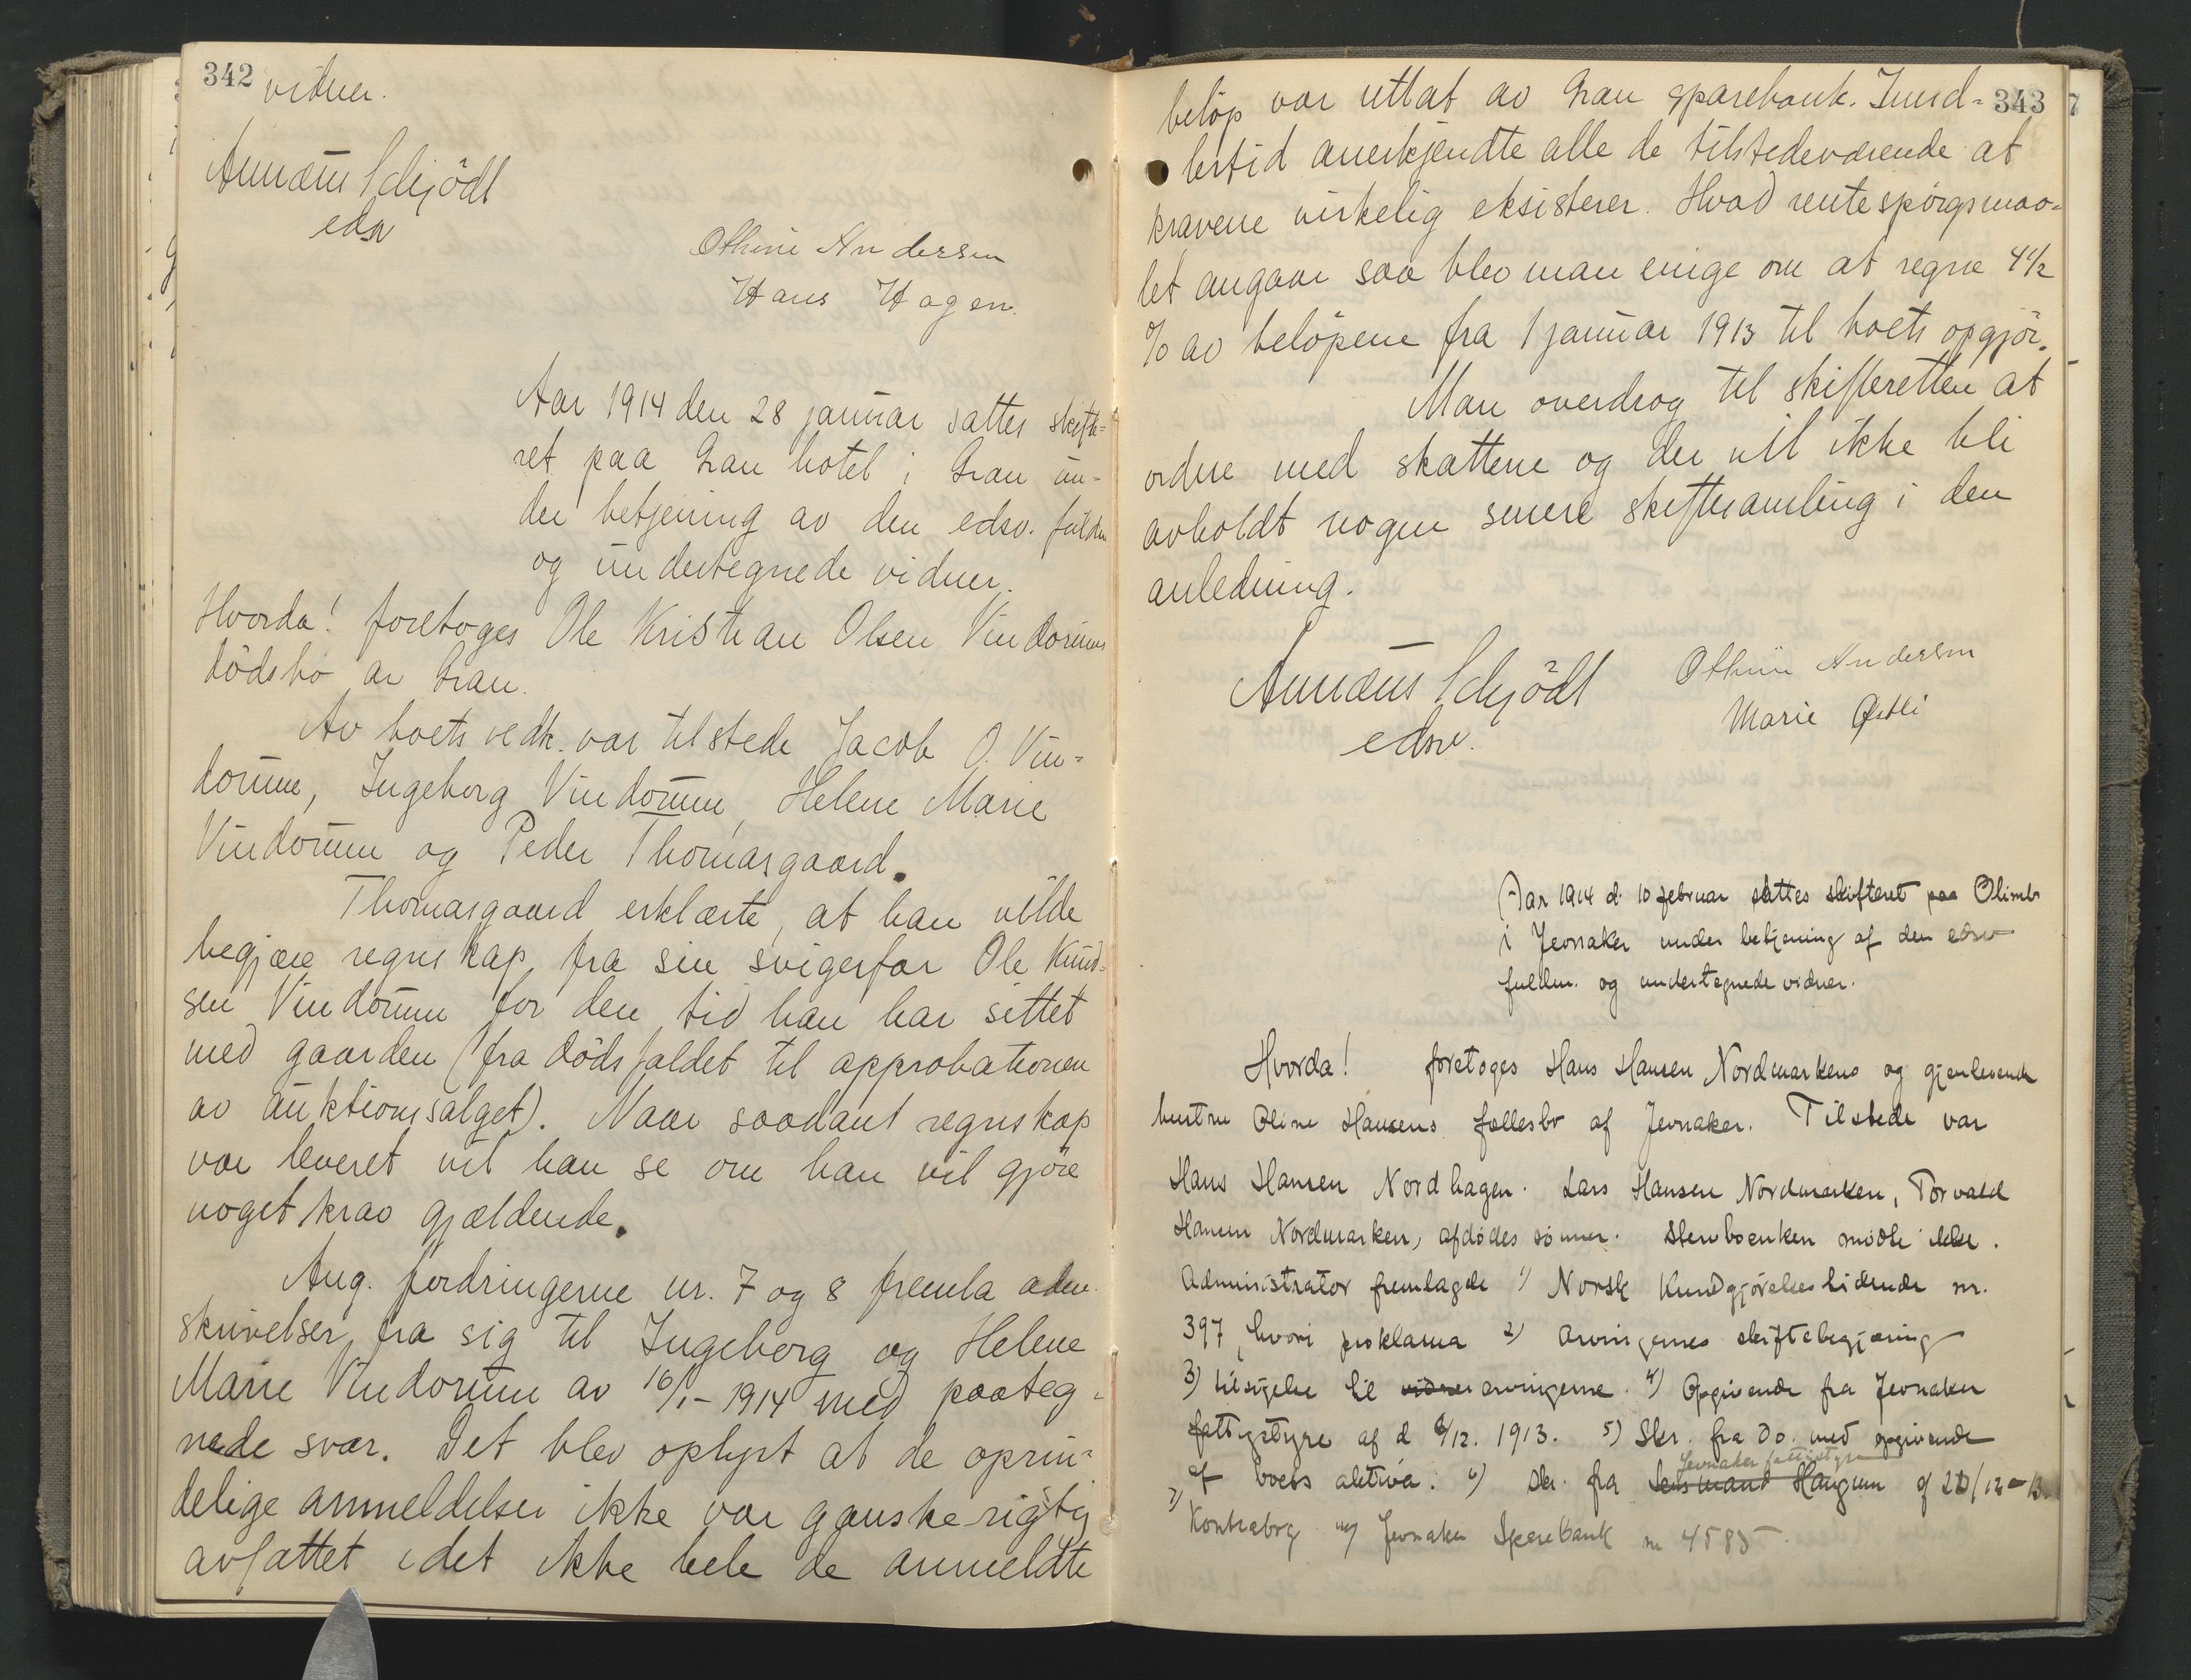 342 vidner.
Annæus Schjödt
edsv
Othine Andersen
Hans Hagen.
Aar 1914 den 28 januar sattes skifte-
ret paa Gran hotel i Gran un-
der betjening av den edsv. fuldm
og undertegnede vidner.
Hvorda! foretoges Ole Kristian Olsen Vindorums
dödsbo av Gran.
Av boets vedk. var tilstede Jacob O. Vin-
dorum, Ingeborg Vindorum, Helene Marie
Vindorum og Peder Thomasgaard.
Thomasgaard erklærte, at han vilde
begjære regnskap fra sin svigerfar Ole Knud-
sen Vindorum for den tid han har sittet
med gaarden (fra dödsfaldet til approbationen
av auktionssalget). Naar saadant regnskap
var leveret vil han se om han vil gjöre
noget krav gjældende.
Ang. fordringerne nr. 7 og 8 fremla adm.
skrivelser fra sig til Ingeborg og Helene
Marie Vindorum av 16/1-1914 med paateg-
nede svar. Det blev oplyst at de oprin-
delige anmeldelser ikke var ganske rigtig
avfattet idet ikke hele de anmeldte
343
belöp var uttat av Gran sparebank. Imid-
lertid anerkjendte alle de tilstedeværende at
kravene virkelig eksisterer. Hvad rentespörgsmaa-
let angaar saa blev man enige om at regne 4 1/2
% av belöpene fra 1 januar 1913 til boets opgjör.
Man overdrog til skifteretten at
ordne med skattene og der vil ikke bli
avholdt nogen senere skiftesamling i den
anledning.
Annæus Schjödt
edsv.
Othine Andersen
Marie Østli
Aar 1914 d. 10 februar sattes skifteret paa Olimb
i Jevnaker under betjening af den edsv
fuldm. og undertegnede vidner.
Hvorda! foretoges Hans Hansen Nordmarkens og gjenlevende
hustru Oline Hansens fællesbo af Jevnaker. Tilstede var
Hans Hansen Nordhagen. Lars Hansen Nordmarken, Torvald
Hansen Nordmarken, afdødes sønner. Sterboenken mødte ikke.
Administrator fremlagde 1) Norsk Kundgjørelsestidende nr.
397, hvori proklama 2) Arvingernes skiftebegjæring
3) tilsigelse til vidner arvingerne. 4) Opgivende fra Jevnaker
fattigstyre af d 6/12. 1913. 5) Skr. fra do. med opgivende
Jevnaker fattigstyre
af boets aktiva. 6) Skr. fra Lensmand Haugum af 20/12-13.
7) Kontrabog Jevnaker Sparebank nr 4585